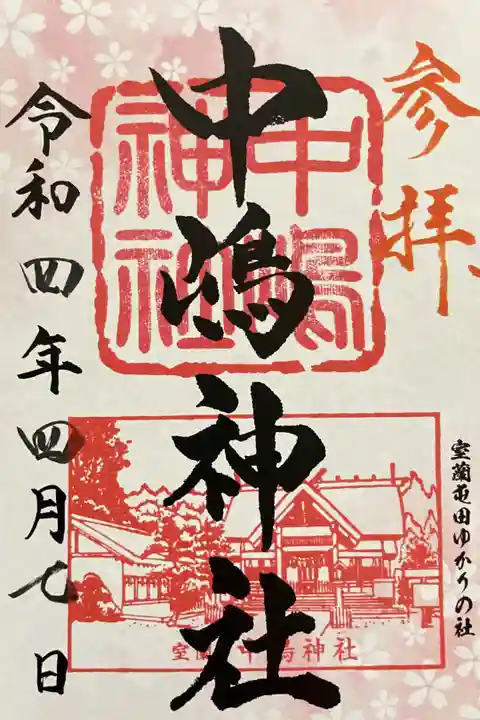 参拝
室蘭屯田ゆかりの社
中嶋神社
中嶋神社
令和四年四月七日
室蘭 中嶋神社